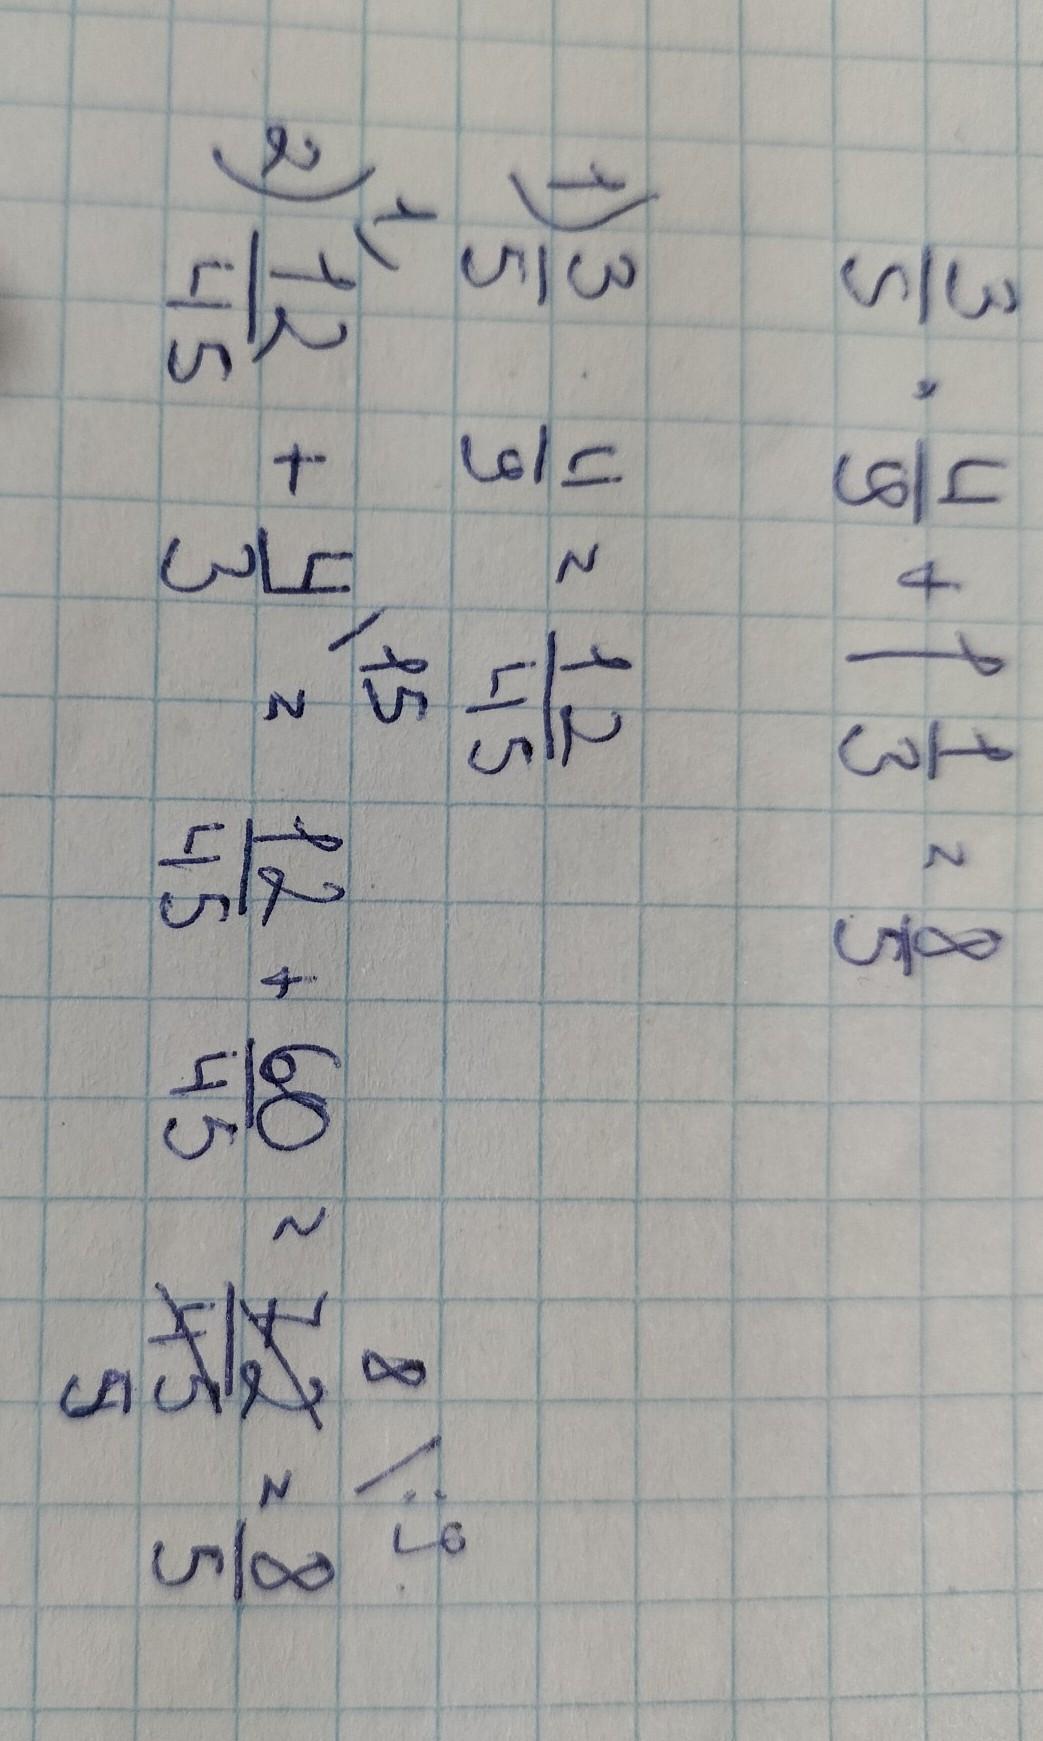 3/5 · 4/9 + 1 1/3 = 8/5
1) 3/5 · 4/9 = 12/45
2) 12/45 \1 + 4/3 \15 = 12/45 + 60/45 = 72/45 \:9 8 5 = 8/5